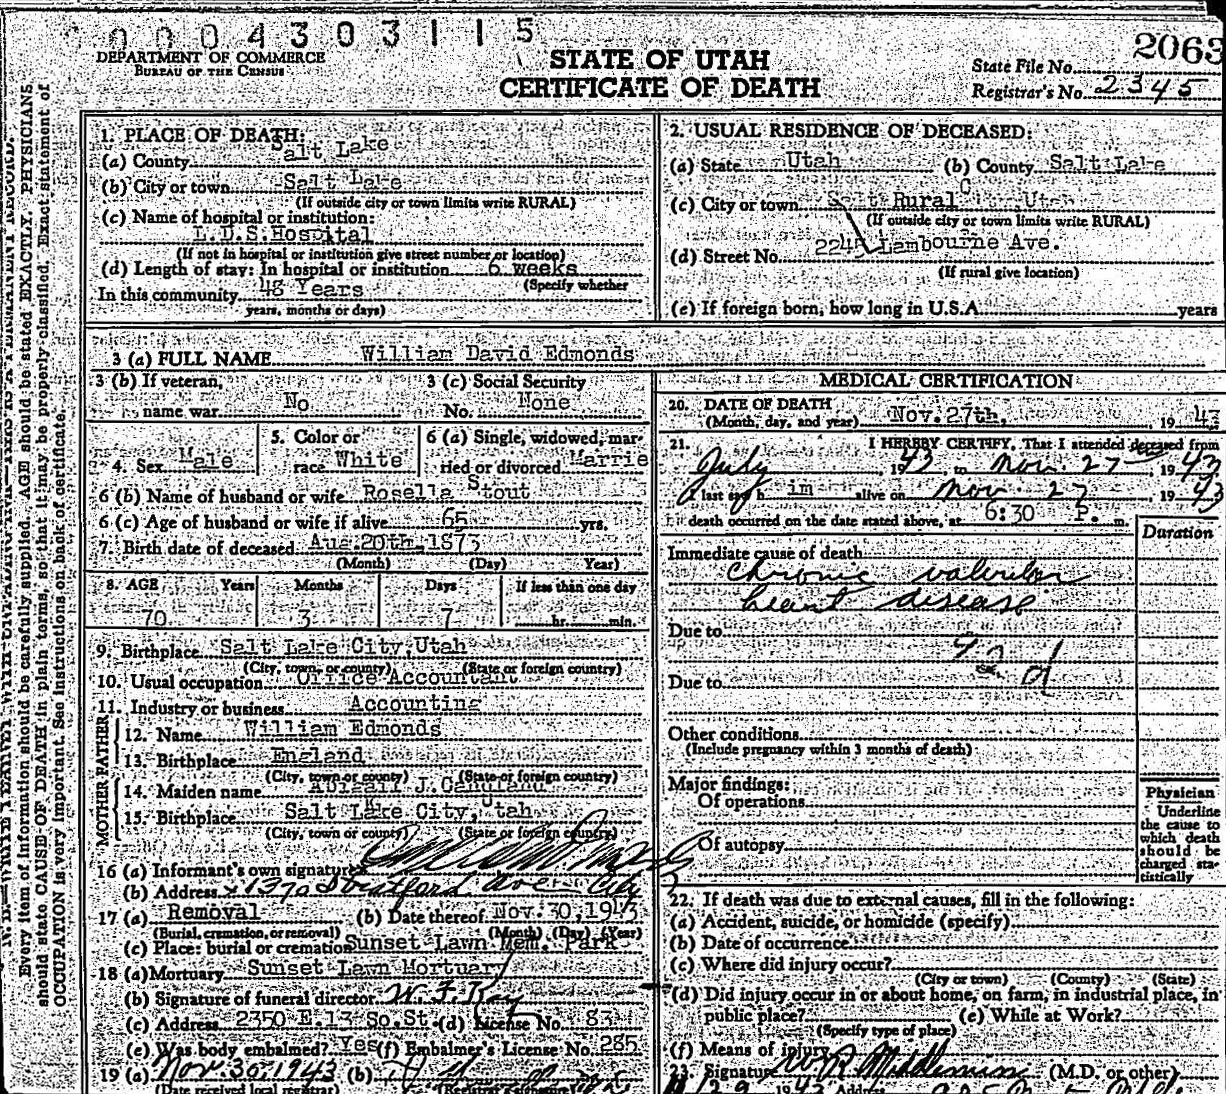 0004303115
DEPARTMENT OF COMMERCE
BUREAU OF THE CENSUS
STATE OF UTAH
CERTIFICATE OF DEATH
State File No. 2063
Registrar's No. 2345
Every item of information should be carefully supplied. AGE should be stated EXACTLY. PHYSICIANS
should state CAUSE OF DEATH in plain terms, so that it may be properly classified. Exact statement of
OCCUPATION is very important. See instructions on back of certificate.
1. PLACE OF DEATH:
(a) County Salt Lake
(b) City or town Salt Lake
(If outside city or town limits write RURAL)
(c) Name of hospital or institution:
L.D.S.Hospital
(If not in hospital or institution give street number or location)
(d) Length of stay: In hospital or institution 6 weeks
(Specify whether
In this community 48 Years
years, months or days)
2. USUAL RESIDENCE OF DECEASED:
(a) State Utah (b) County Salt Lake
(c) City or town Salt Rural C Utah
(If outside city or town limits write RURAL)
(d) Street No. 2245 Lambourne Ave.
(If rural give location)
(e) If foreign born, how long in U.S.A. years
3 (a) FULL NAME William David Edmonds
3 (b) If veteran, name war No
3 (c) Social Security No. None
4. Sex Male
5. Color or race White
6 (a) Single, widowed, married or divorced Marrie
6 (b) Name of husband or wife Rosella Stout
6 (c) Age of husband or wife if alive 65 yrs.
7. Birth date of deceased Aug.20th,1873
(Month) (Day) Year)
8. AGE Years Months Days If less than one day
70 3 7 hr. min.
9. Birthplace Salt Lake City,Utah
(City, town, or county) (State or foreign country)
10. Usual occupation Office Accountant
11. Industry or business Accounting
FATHER
12. Name William Edmonds
13. Birthplace England
(City, town or county) (State or foreign country)
MOTHER
14. Maiden name Abigail J.
15. Birthplace Salt Lake City, Utah
(City, town or county) (State or foreign country)
16 (a) Informant's own signature
(b) Address 1370 Stratford Ave City
17 (a) Removal (b) Date thereof Nov.30,1943
(Burial, cremation, or removal) (Month) (Day) (Year)
(c) Place: burial or cremation Sunset Lawn Mem. Park
18 (a) Mortuary Sunset Lawn Mortuary
(b) Signature of funeral director
(c) Address 2350 E.13 So.St. (d) License No. 83
(e) Was body embalmed? Yes (f) Embalmer's License No. 285
19 (a) Nov. 30, 1943 (b)
(Date received local registrar) (Registrar's signature)
MEDICAL CERTIFICATION
20. DATE OF DEATH
(Month, day, and year) Nov.27th, 1943
21. I HEREBY CERTIFY, That I attended deceased from
July 1943 to Nov. 27 1943
I last saw him alive on Nov. 27 1943
death occurred on the date stated above, at 6:30 P. m.
Duration
Immediate cause of death
chronic valvular
heart disease
Due to
92 d
Due to
Other conditions
(Include pregnancy within 3 months of death)
Major findings:
Of operations
Of autopsy
Physician
Underline
the cause to
which death
should be
charged sta-
tistically
22. If death was due to external causes, fill in the following:
(a) Accident, suicide, or homicide (specify)
(b) Date of occurrence
(c) Where did injury occur?
(City or town) (County) (State)
(d) Did injury occur in or about home, on farm, in industrial place, in
public place? (e) While at Work?
(Specify type of place)
(f) Means of injury
23. Signature (M.D. or other)
1943 Address